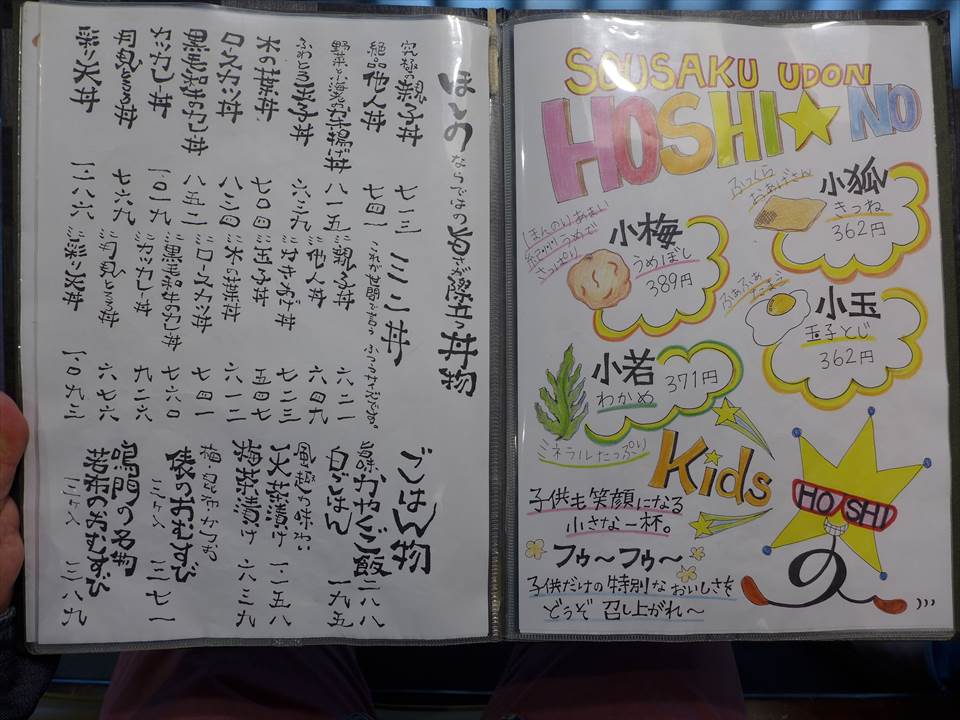 ほしのならではの旨さが際立つ丼物
究極の親子丼 七一三
絶品他人丼 七四一
野菜と小海老のかき揚げ丼 八一五
ふわとろ玉子丼 六三九
木の葉丼 七〇四
ロースカツ丼 八三四
黒毛和牛のカレー丼 八五二
カツカレー丼 一.〇一九
月見とろろ丼 七六九
彩り天丼 一.一八六
ミニ丼
これが世間で言うふつうサイズです。
ミニ親子丼 六二一
ミニ他人丼 六四九
ミニかきあげ丼 七二三
ミニ玉子丼 五四七
ミニ木の葉丼 六一二
ミニロースカツ丼 七四一
ミニ黒毛和牛のカレー丼 七六〇
ミニカツカレー丼 九二六
ミニ月見とろろ丼 六七六
ミニ彩り天丼 一.〇九三
ごはん物
旨味かやくご飯 二八八
白ごはん 一九五
風趣の味わい
天茶漬け 一.二五八
梅茶漬け 六三九
梅・昆布・かつお
俵のおむすび 二ケ入 二七一
鳴門の名物
若布のおむすび 二ケ入 二八九
SOUSAKU UDON
HOSHI★NO
ふっくら
おあげさん
小狐
きつね
362円
まんのいあまい
紀州うめで
さっぱり
小梅
うめぼし
389円
ふぁふぁ
たまご
小玉
玉子とじ
362円
小若
わかめ
371円
ミネラルたっぷり
Kids
子供も笑顔になる
小さな一杯。
フゥ〜フゥ〜
子供だけの特別なおいしさを
どうぞ召し上がれ〜
HOSHI
の